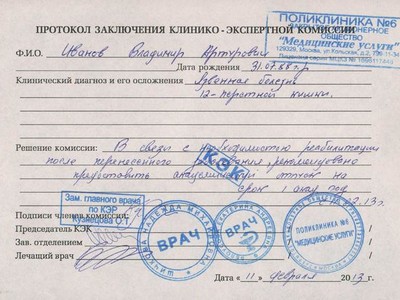 ПОЛИКЛИНИКА №6
АКЦИОНЕРНОЕ
ОБЩЕСТВО
"Медицинские услуги"
129329, Москва, ул. Кольская, д.2
ПРОТОКОЛ ЗАКЛЮЧЕНИЯ КЛИНИКО - ЭКСПЕРТНОЙ КОМИССИИ
Ф.И.О. Иванов Владимир Артурович
Дата рождения 31.07.88 г.р.
Клинический диагноз и его осложнения Язвенная болезнь
12-перстной кишки.
Решение комиссии: В связи с необходимостью реабилитации
после перенесенного заболевания, рекомендовано
предоставить академический отпуск на
срок 1 год
КЭК
Зам. главного врача
по КЭР
Кузнецова О.Т.
Подписи членов комиссии:
Председатель КЭК
Зав. отделением
Лечащий врач
ВРАЧ
НАДЕЖДА МИХАЙЛОВНА
ВРАЧ
ЕКАТЕРИНА
ПОЛИКЛИНИКА №6
"МЕДИЦИНСКИЕ УСЛУГИ"
Дата « 11 » февраля 2013 г.